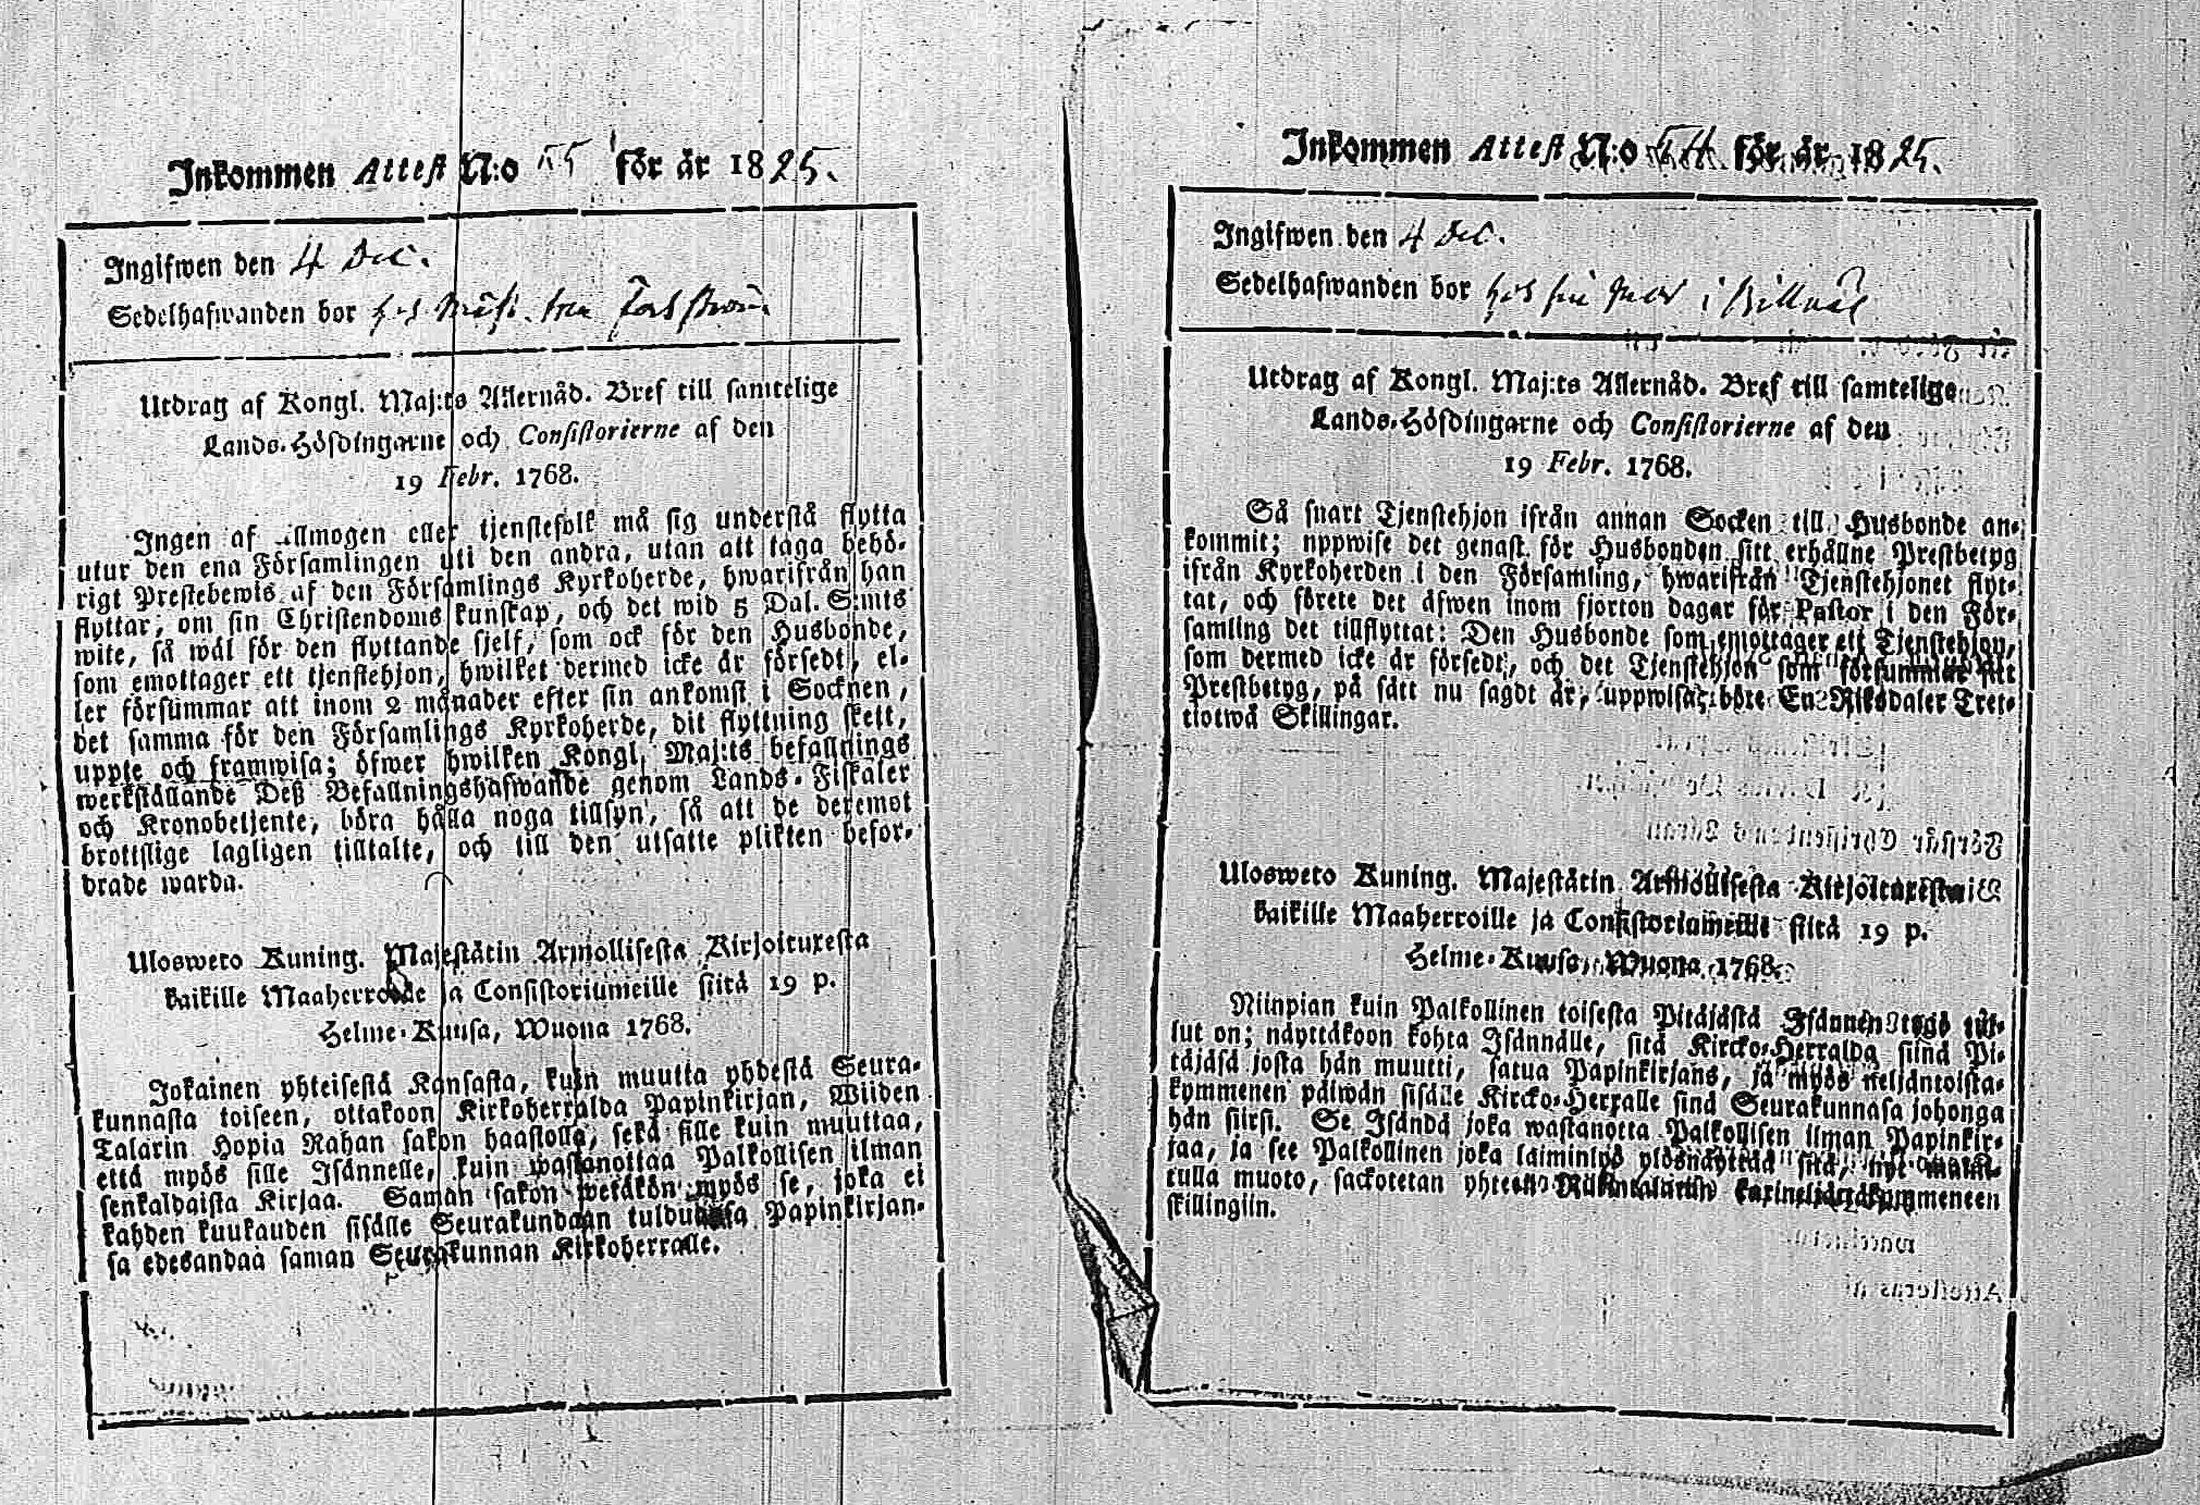 Inkommen Attest N:o 55 för år 1825.
Ingifwen den 4 Dec.
Sedelhafwanden bor hos
Utdrag af Kongl. Maj:ts Allernåd. Bref till samtelige
Lands-Höfdingarne och Consistorierne af den
19 Febr. 1768.
Ingen af Allmogen eller tjenstefolk må sig understå flytta
utur den ena Församlingen uti den andra, utan att taga behö-
rigt Prestebewis af den Församlings Kyrkoherde, hwarifrån han
flyttar, om sin Christendoms kunskap, och det wid 5 Dal. S:mts
wite, så wäl för den flyttande sjelf, som ock för den Husbonde,
som emottager ett tjenstehjon, hwilket dermed icke är försedt, el-
ler försummar att inom 2 månader efter sin ankomst i Socknen,
det samma för den Församlings Kyrkoherde, dit flyttning skett,
uppte och framwisa; öfwer hwilken Kongl. Maj:ts befallnings
werkställande Deß Befallningshafwande genom Lands-Fiskaler
och Kronobetjente, böra hålla noga tillsyn, så att de deremot
brottslige lagligen tilltalte, och till den utsatte plikten befor-
drade warda.
Ulosweto Kuning. Majestätin Armollisesta Kirjoituxesta
kaikille Maaherroille ja Consistoriumeille siitä 19 p.
Helme-Kuusa, Wuona 1768.
Jokainen yhteisestä Kansasta, kuin muutta yhdestä Seura-
kunnasta toiseen, ottakoon Kirkoherralda Papinkirjan, Wiiden
Talarin Hopia Rahan sakon haastolla, sekä sille kuin muuttaa,
että myös sille Isännelle, kuin wastanottaa Palkollisen ilman
senkaldaista Kirjaa. Saman sakon wetäkön myös se, joka ei
kahden kuukauden sisälle Seurakundaan tulduansa Papinkirjan-
sa edesandaa saman Seurakunnan Kirkoherralle.
Inkommen Attest N:o 54 för år 1825.
Ingifwen den 4 Dec.
Sedelhafwanden bor hos sin i Billnäs
Utdrag af Kongl. Maj:ts Allernåd. Bref till samtelige
Lands-Höfdingarne och Consistorierne af den
19 Febr. 1768.
Så snart Tjenstehjon ifrån annan Socken till Husbonde an-
kommit; uppwise det genast för Husbonden sitt erhållne Prestbetyg
ifrån Kyrkoherden i den Församling, hwarifrån Tjenstehjonet flyt-
tat, och förete det äfwen inom fjorton dagar för Pastor i den För-
samling det tillflyttat: Den Husbonde som emottager ett Tjenstehjon,
som dermed icke är försedt, och det Tjenstehjon som försummar sitt
Prestbetyg, på sätt nu sagdt är, uppwisa, böte En Riksdaler Tret-
tiotwå Skillingar.
Ulosweto Kuning. Majestätin Armollisesta Kirjoituxesta
kaikille Maaherroille ja Consistoriumeille siitä 19 p.
Helme-Kuusa, Wuona 1768.
Niinpian kuin Palkollinen toisesta Pitäjästä Isännen tygö tul-
lut on; näyttäkoon kohta Isännälle, sitä Kircko-Herralda siinä Pi-
täjäsä josta hän muutti, satua Papinkirjans, ja myös neljäntoista-
kymmenen päiwän sisälle Kircko-Herralle siinä Seurakunnasa johonga
hän siirsi. Se Isändä joka wastanotta Palkollisen ilman Papinkir-
jaa, ja see Palkollinen joka laiminlyö ylösnäyttää sitä, nyt
tulla muoto, sackotetan yhteen Riikintalariin kaxineljättäkymmeneen
skillingiin.